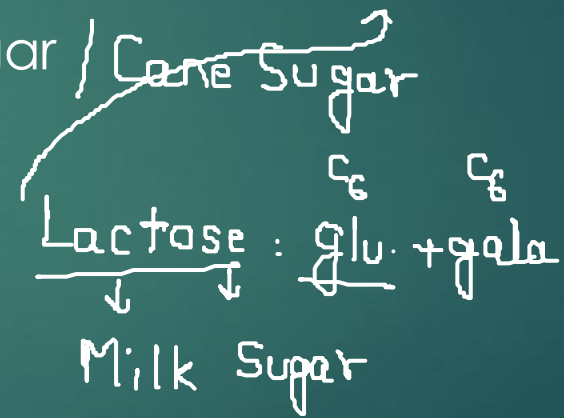 ar / Cane Sugar
C6 C6
Lactose : glu. + gala
Milk Sugar